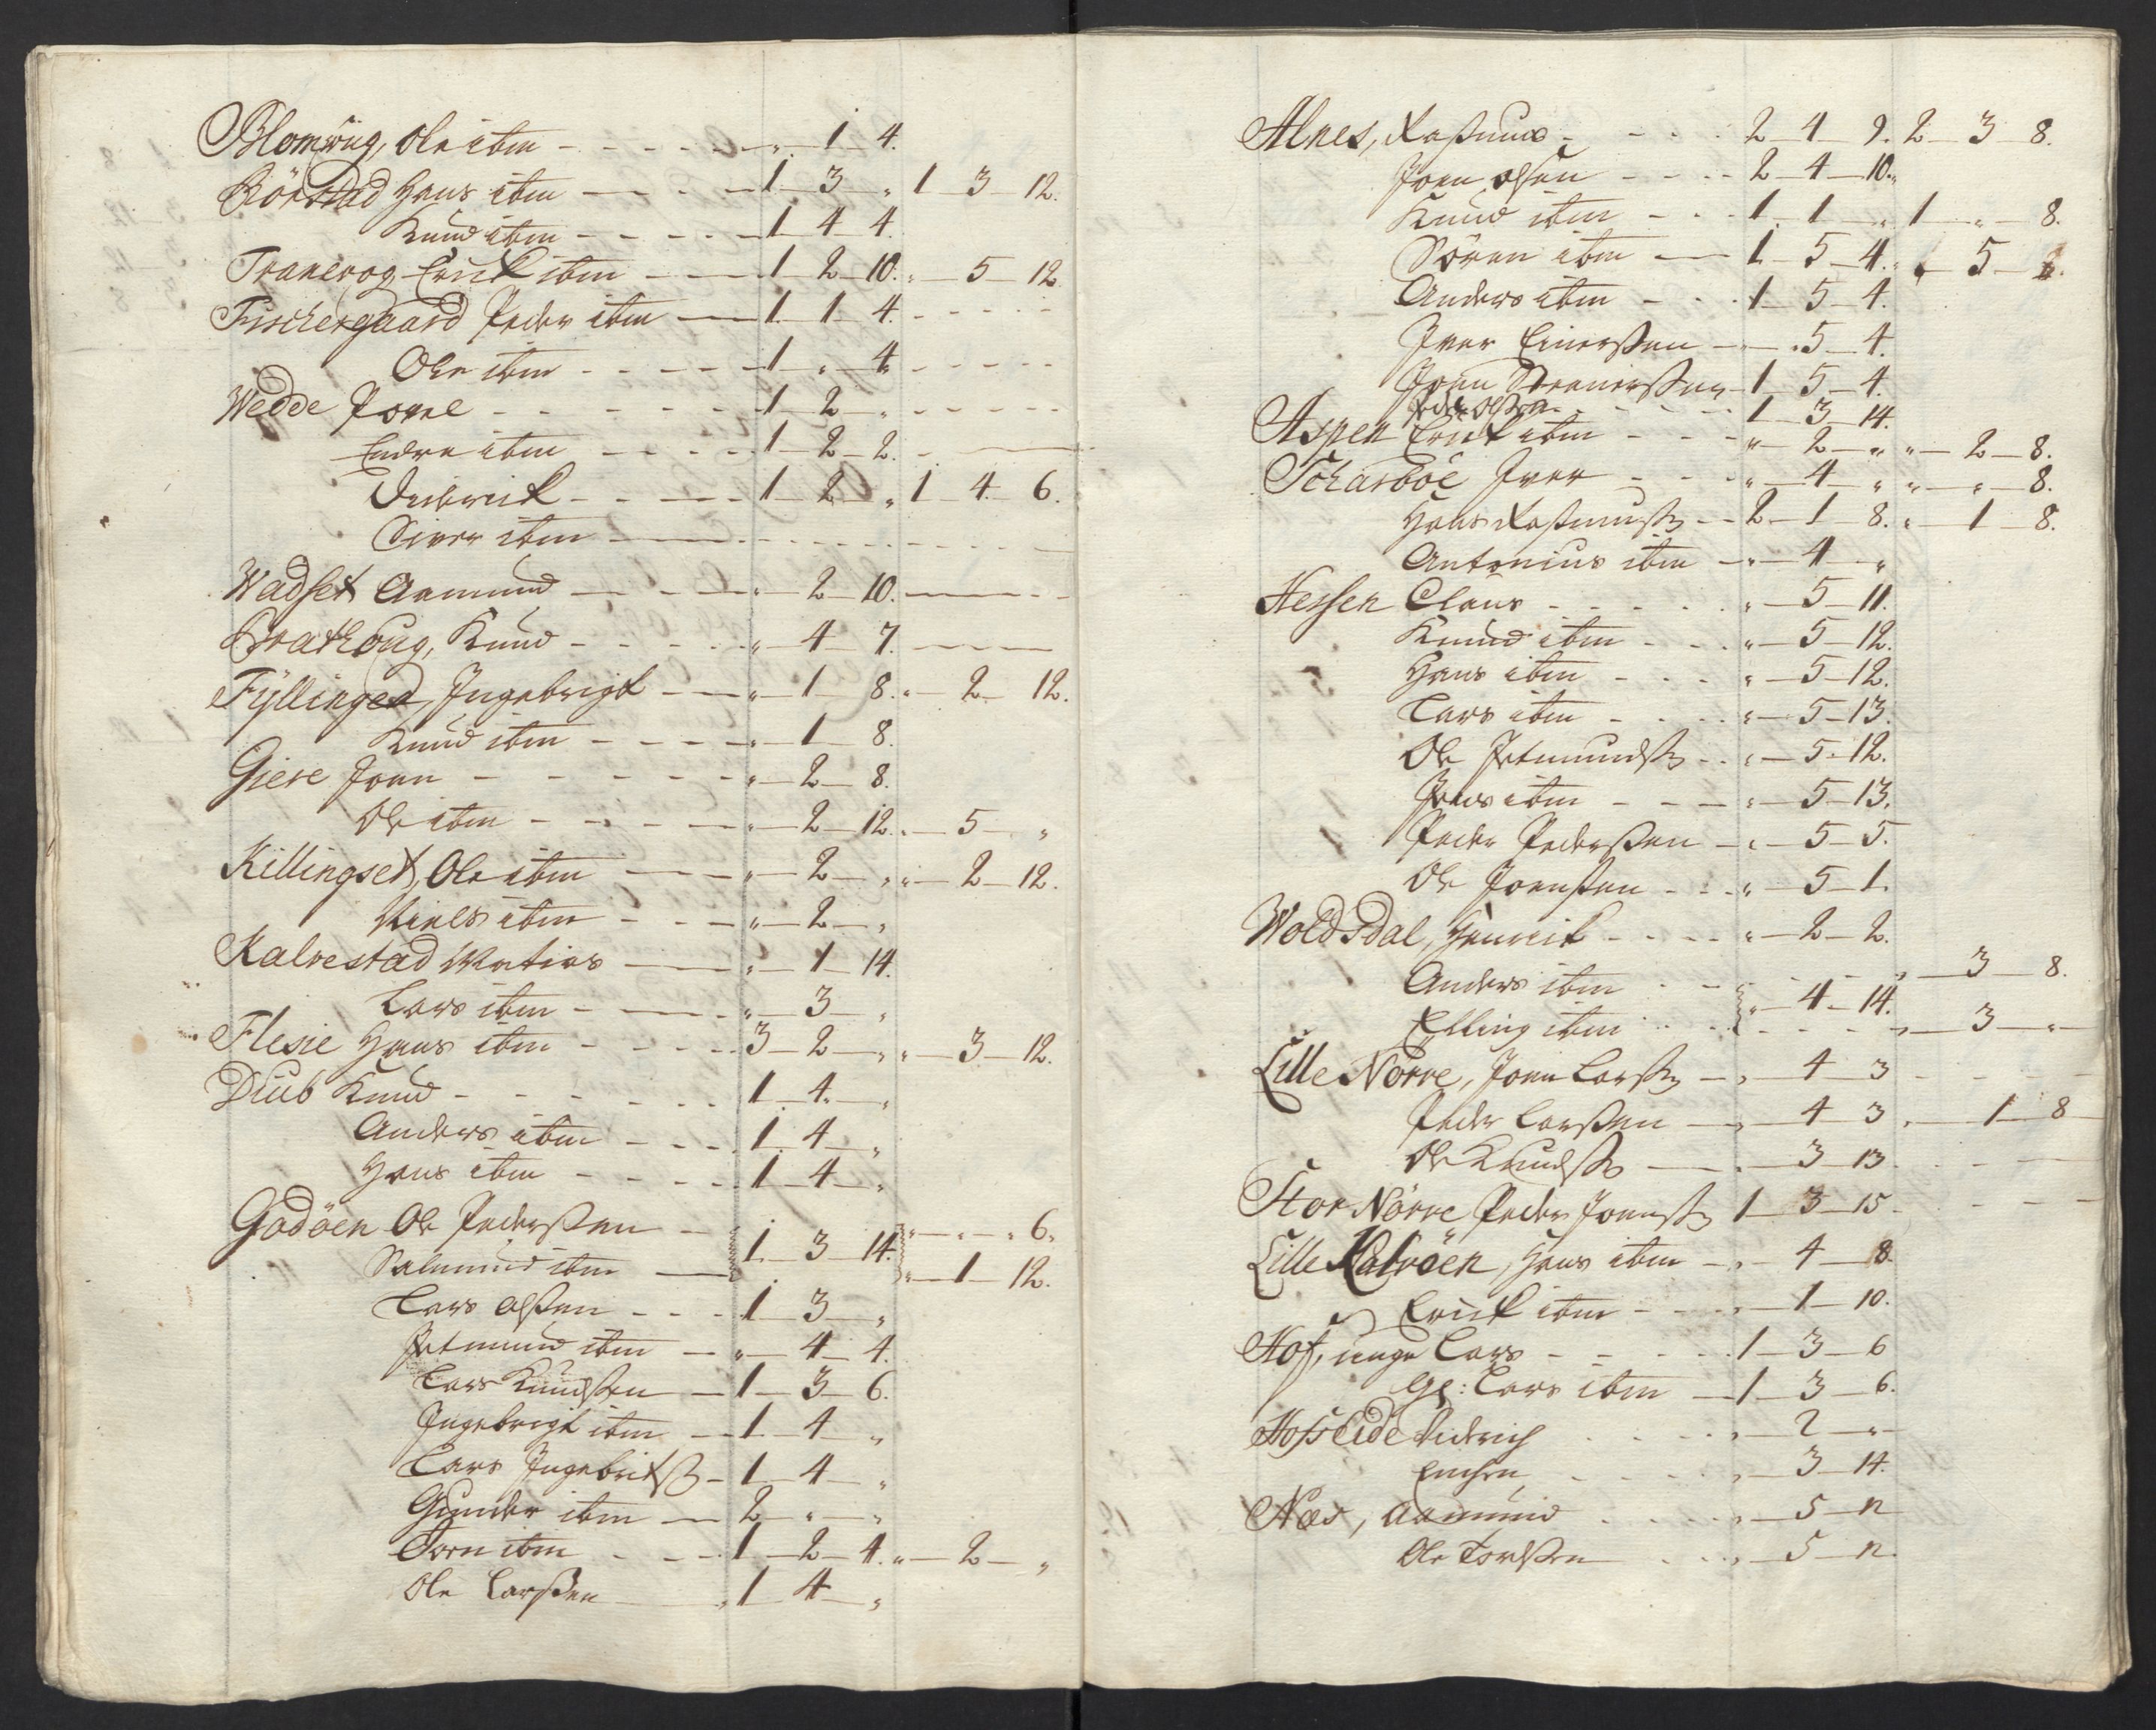 Blomvug, Ole ibm - - - - - „ 1 4.
Rörstad Hans ibm - - - 1 3 „ 1 3 12.
Knud ibm - - - - 1 4 4.
Tranerog Erick ibm - - 1 2 10. „ 5 12
Fischergaard Peder ibm - 1 1 4. - - - -
Ole ibm - - - - 1 „ 4 - - - -
Wedde Povel - - - - - 1 2 „ - - - -
Endre ibm - - - - 1 2 2. -
Diderick - - - 1 2 „ 1 4 6.
Siver ibm - - - -
Wadset Aamund - - - „ 2 10. - - -
Brathoug, Knud - - - - „ 4 7. - -
Fÿllinge, Ingebrigt - - „ 1 8. „ 2 12.
Knud ibm - - - - „ 1 8.
Giere Joen - - - - - „ 2 8.
Ole ibm - - - - „ 2 12. „ 5 „
Killingset, Ole ibm - - „ 2 „ „ 2 12.
Niels ibm - - - „ 2 „
Kalvestad Matias - - „ 1 14.
Lars ibm - - - „ 3 „
Flesie Hans ibm - - - - 3 2 „ „ 3 12.
Diub Knud - - - - - - 1 4 „
Anders ibm - - - 1 4 „
Hans ibm - - - - 1 4 „
Godöen Ole Pederßen - 1 3 14. „ „ 6.
Salmund ibm - „ 1 12.
Lars Olßen - - - 1 3 „
Petmund ibm - „ 4 4.
Lars Knudßen - 1 3 6.
Ingebrigt ibm - 1 4 „
Lars Ingebritß - 1 4 „
Gunder ibm - 2 „ „
Torn ibm - - - 1 2 4. „ 2 „
Ole Larßen - 1 4 „
Alnes, Raßmus - - - 2 4 9. 2 3 8.
Joen olsen - - - - 2 4 10. „
Knud ibm - - - 1 1 „ 1 „ 8.
Sören ibm - 1 5 4. „ 5
Anders ibm - - - 1 5 4.
Iver Einerßen - „ 5 4.
Joen - 1 5 4.
Peder Olßen - - - 1 3 14.
Aspen Erick ibm - - - „ 2 „ „ 2 8.
Schasböe Iver - - - „ 4 „ „ „ 8.
Hans Raßmusß - - 2 1 8. „ 1 8.
Antonius ibm - „ 4 „
Hessen Claus - - - - - „ 5 11.
Knud ibm - - - „ 5 12.
Hans ibm - - - „ 5 12.
Lars ibm - - - „ 5 13.
Ole Petmundß - - „ 5 12.
Jens ibm - - - „ 5 13.
Peder Pederßen - „ 5 5.
Ole Joenßen - - - „ 5 1.
Woldsdal, Henrick - - - - „ 2 2.
Anders ibm - - „ 4 14. „ 3 8.
Elling ibm - - - „ 3 „
Lille Nörve, Joen Larß - „ 4 3 - - -
Peder Larßen - „ 4 3 „ 1 8
Ole Knudß - „ 3 13 - - -
Stor Nörve Peder Joenß 1 3 15 - - -
Lille Kalvöen, Hans ibm - „ 4 8.
Erick ibm - - - „ 1 10.
Hof, unge Lars - - - - 1 3 6
Gl: Lars ibm - 1 3 6.
Hofseide Diderich - - - - „ 2 „
- - - - „ 3 14.
Næs, Aamund - - - - „ 5 12
Ole - - - „ 5 12.